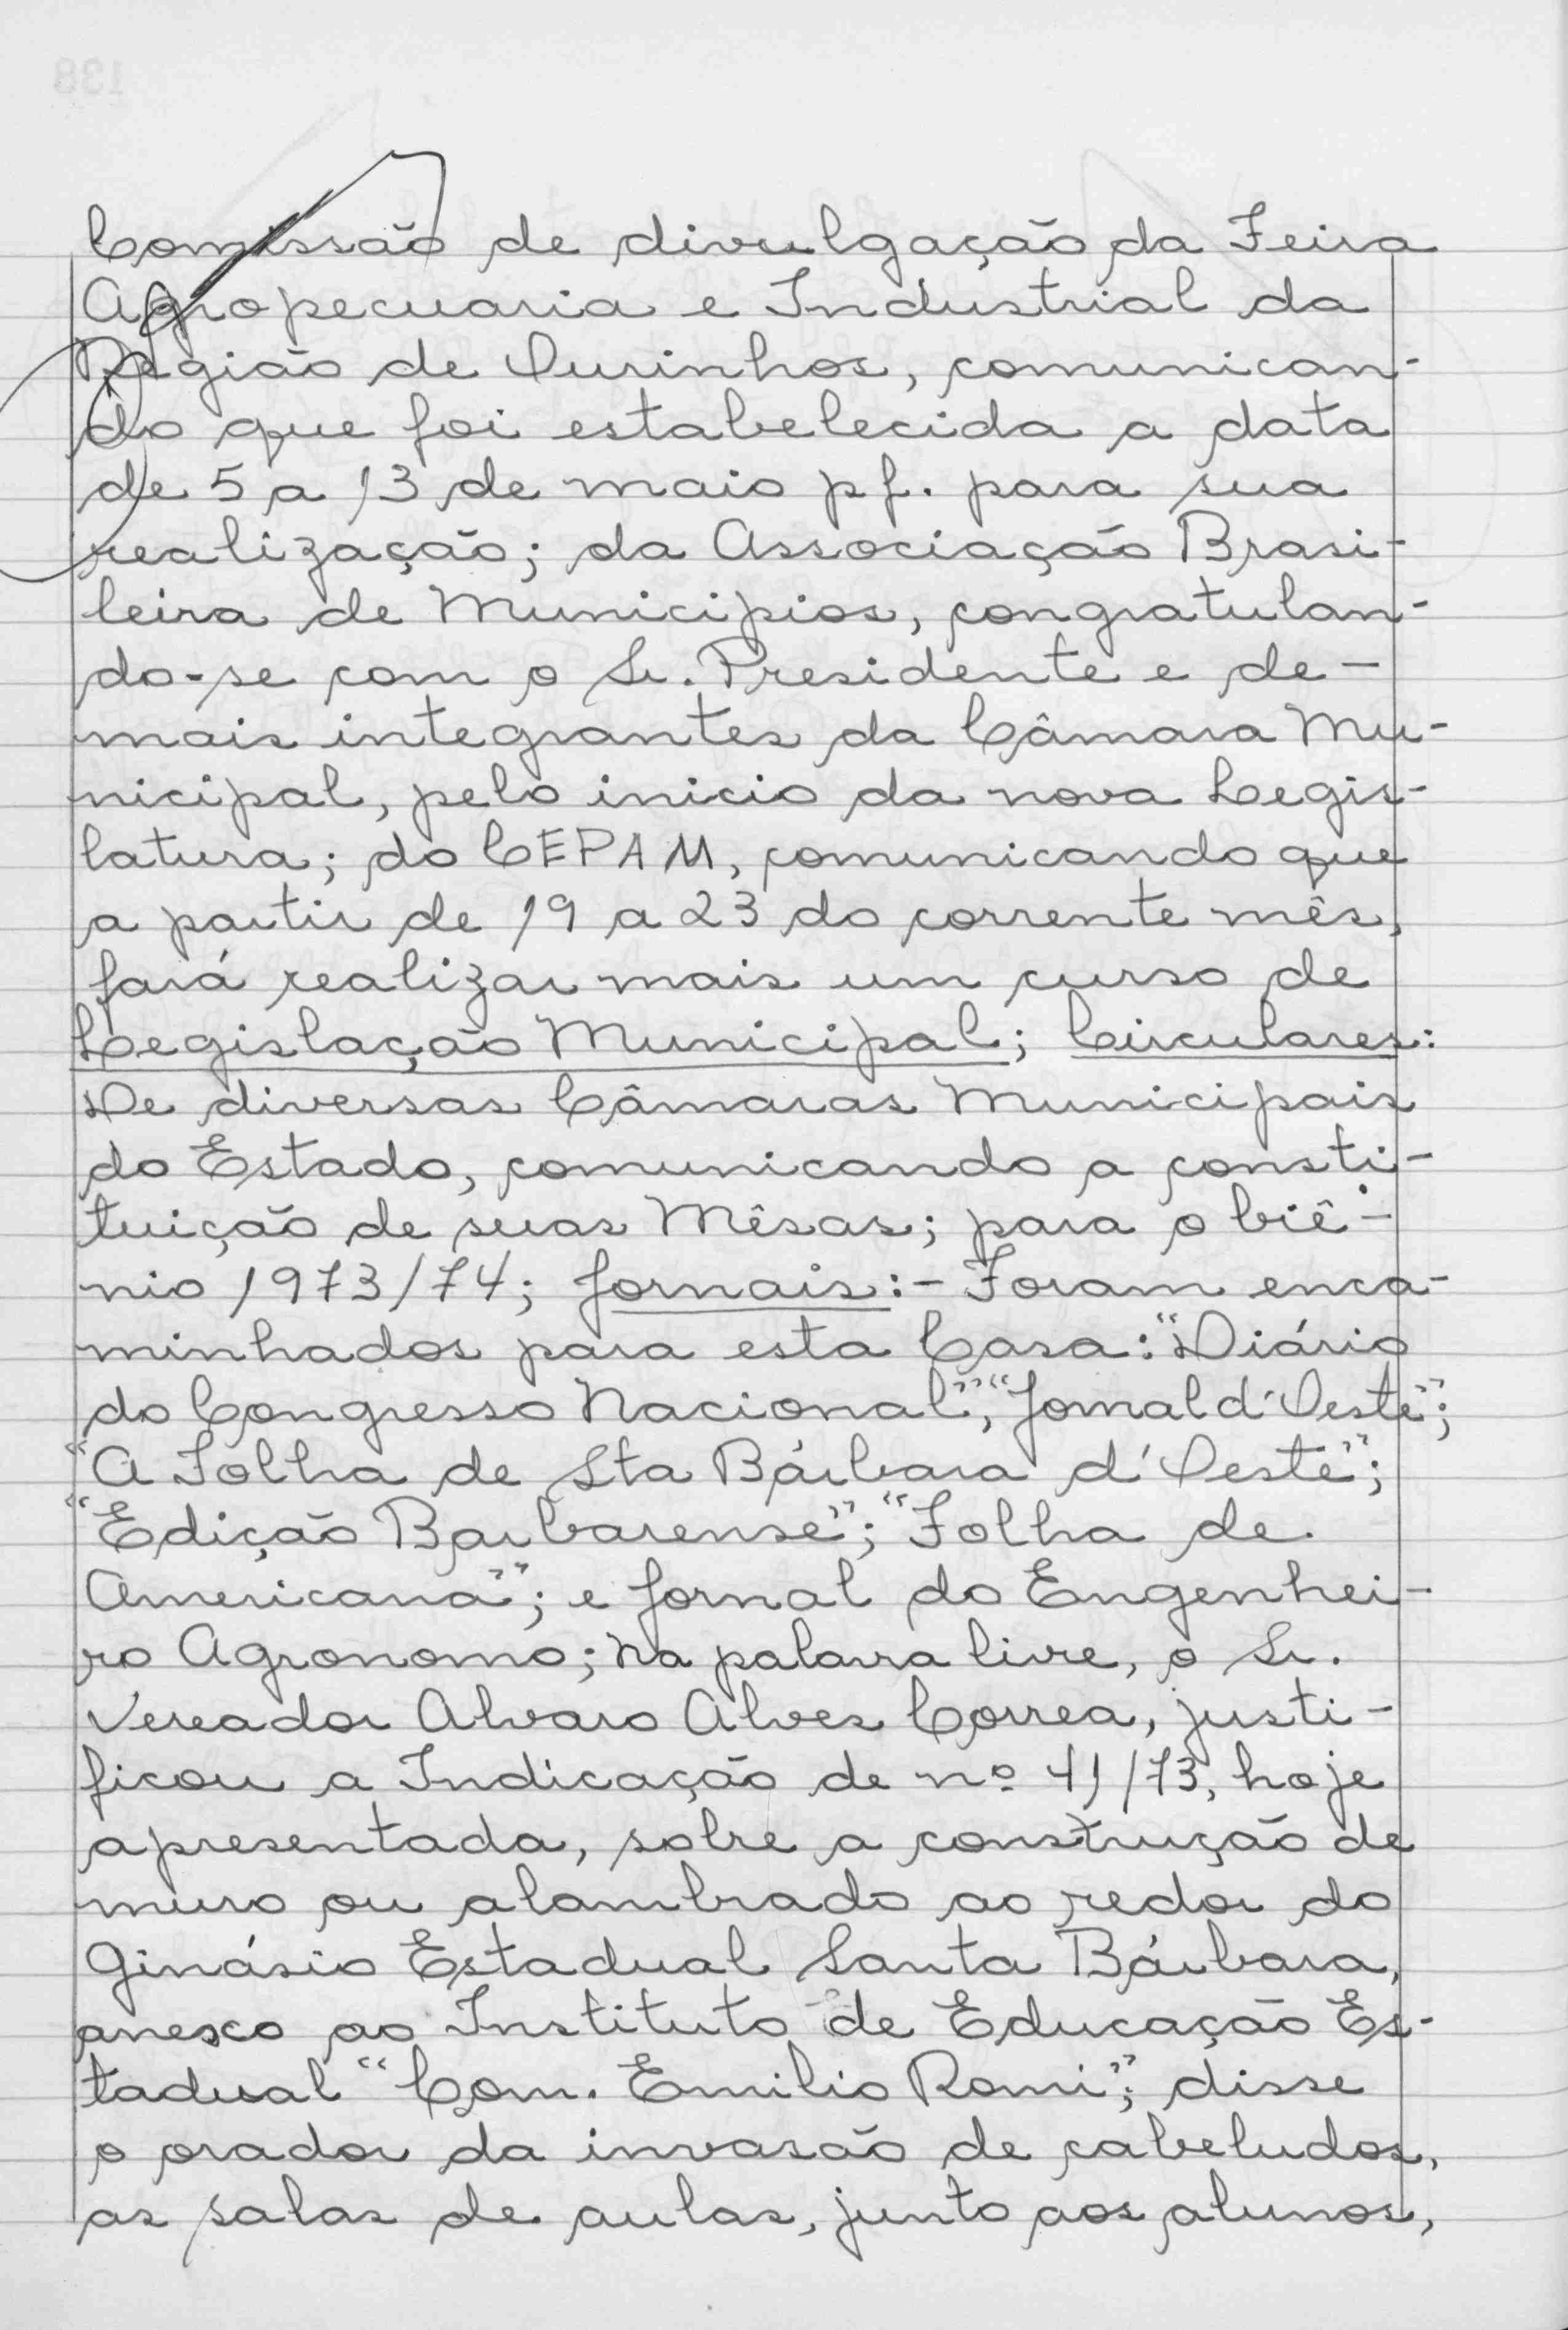 Comissão de divulgação da Feira
Agropecuaria e Industrial da
Região de Ourinhos, comunican-
do que foi estabelecida a data
de 5 a 13 de maio pf. para sua
realização; da Associação Brasi-
leira de Municipios, congratulan-
do-se com o Sr. Presidente e de-
mais integrantes da Câmara Mu-
nicipal, pelo inicio da nova Legis-
latura; do CEPAM, comunicando que
a partir de 19 a 23 do corrente mês,
fará realizar mais um curso de
Legislação Municipal; Circulares:
De diversas Câmaras Municipais
do Estado, comunicando a consti-
tuição de suas Mêsas; para o biê-
nio 1973/74; Jornais:- Foram enca-
minhados para esta Casa: "Diário
do Congresso Nacional", "Jornal d'Oeste";
"A Folha de Sta Bárbara d'Oeste";
"Edição Barbarense"; "Folha de
Americana"; e Jornal do Engenhei-
ro Agronomo; Na palavra livre, o Sr.
Vereador Alvaro Alves Correa, justi-
ficou a Indicação de nº 41/73, hoje
apresentada, sobre a construção de
muro ou alambrado ao redor do
Ginásio Estadual Santa Bárbara,
anexo ao Instituto de Educação Es-
tadual "Com. Emilio Romi"; disse
o orador da invasão de cabeludos,
as salas de aulas, junto aos alunos,